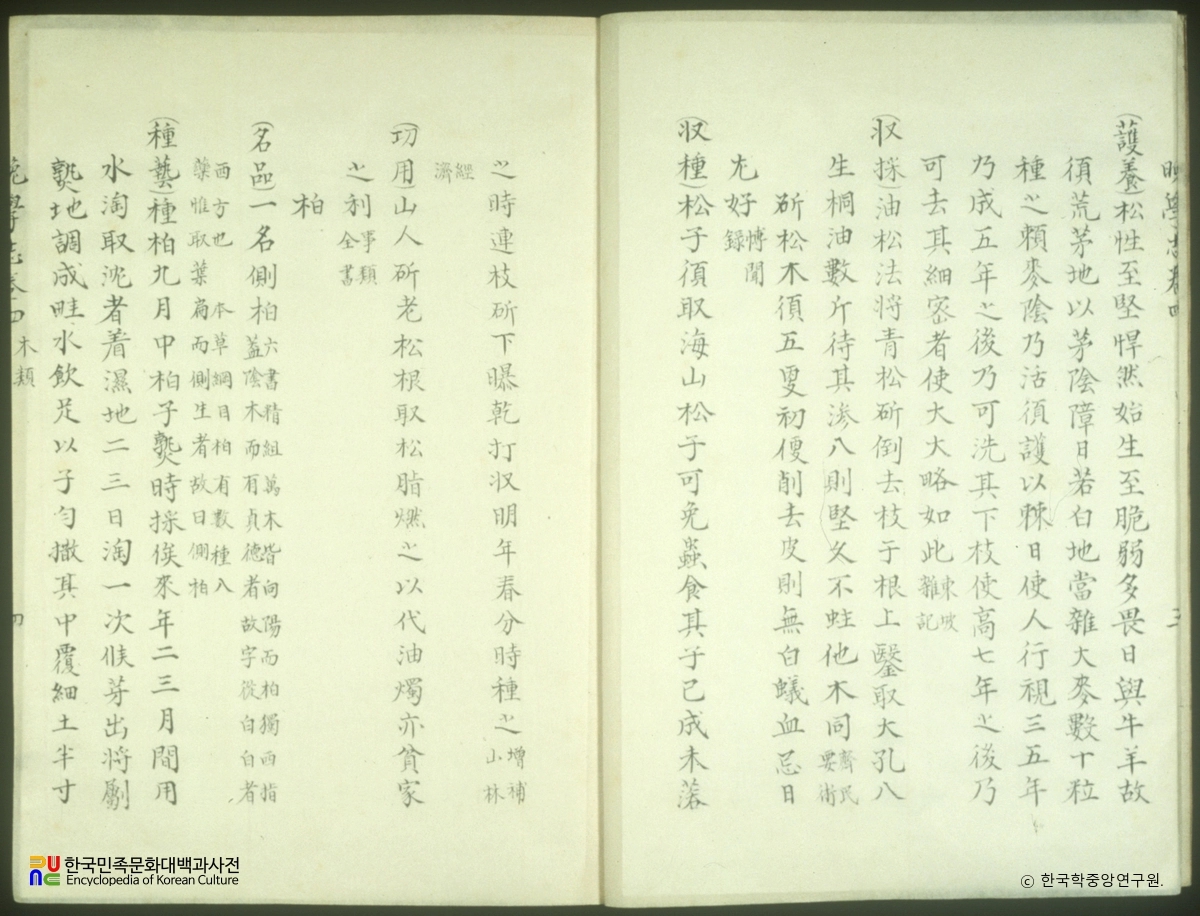 (護養)松性至堅悍然始生至脆弱多畏日與牛羊故
須荒茅地以茅陰障日若白地當雜大麥數十粒
種之賴麥陰乃活須護以棘日使人行視三五年
乃成五年之後乃可洗其下枝使高七年之後乃
可去其細密者使大大略如此東坡雜記
(収採)油松法將青松斫倒去枝于根上鑿取大孔八
生桐油數斤待其滲八則堅久不蛀他木同齊民要術
斫松木須五更初便削去皮則無白蟻血忌日
尤好博聞錄
(収種)松子須取海山松子可免蟲食其子已成未落
之時連枝斫下曝乾打収明年春分時種之增補山林
經濟
(功用)山人斫老松根取松脂燃之以代油燭亦貧家
之利事類全書
柏
(名品)一名側柏六書精組萬木皆向陽而柏獨西指
蓋陰木而有貞德者故字從白白者
西方也 本草綱目柏有數種入
藥惟取葉扁而側生者故曰側柏
(種藝)種柏九月中柏子熟時採俟來年二三月間用
水淘取沈者着濕地二三日淘一次候芽出將劚
熟地調成畦水飮足以子勻撒其中覆細土半寸
木類
四
한국민족문화대백과사전
Encyclopedia of Korean Culture
© 한국학중앙연구원.